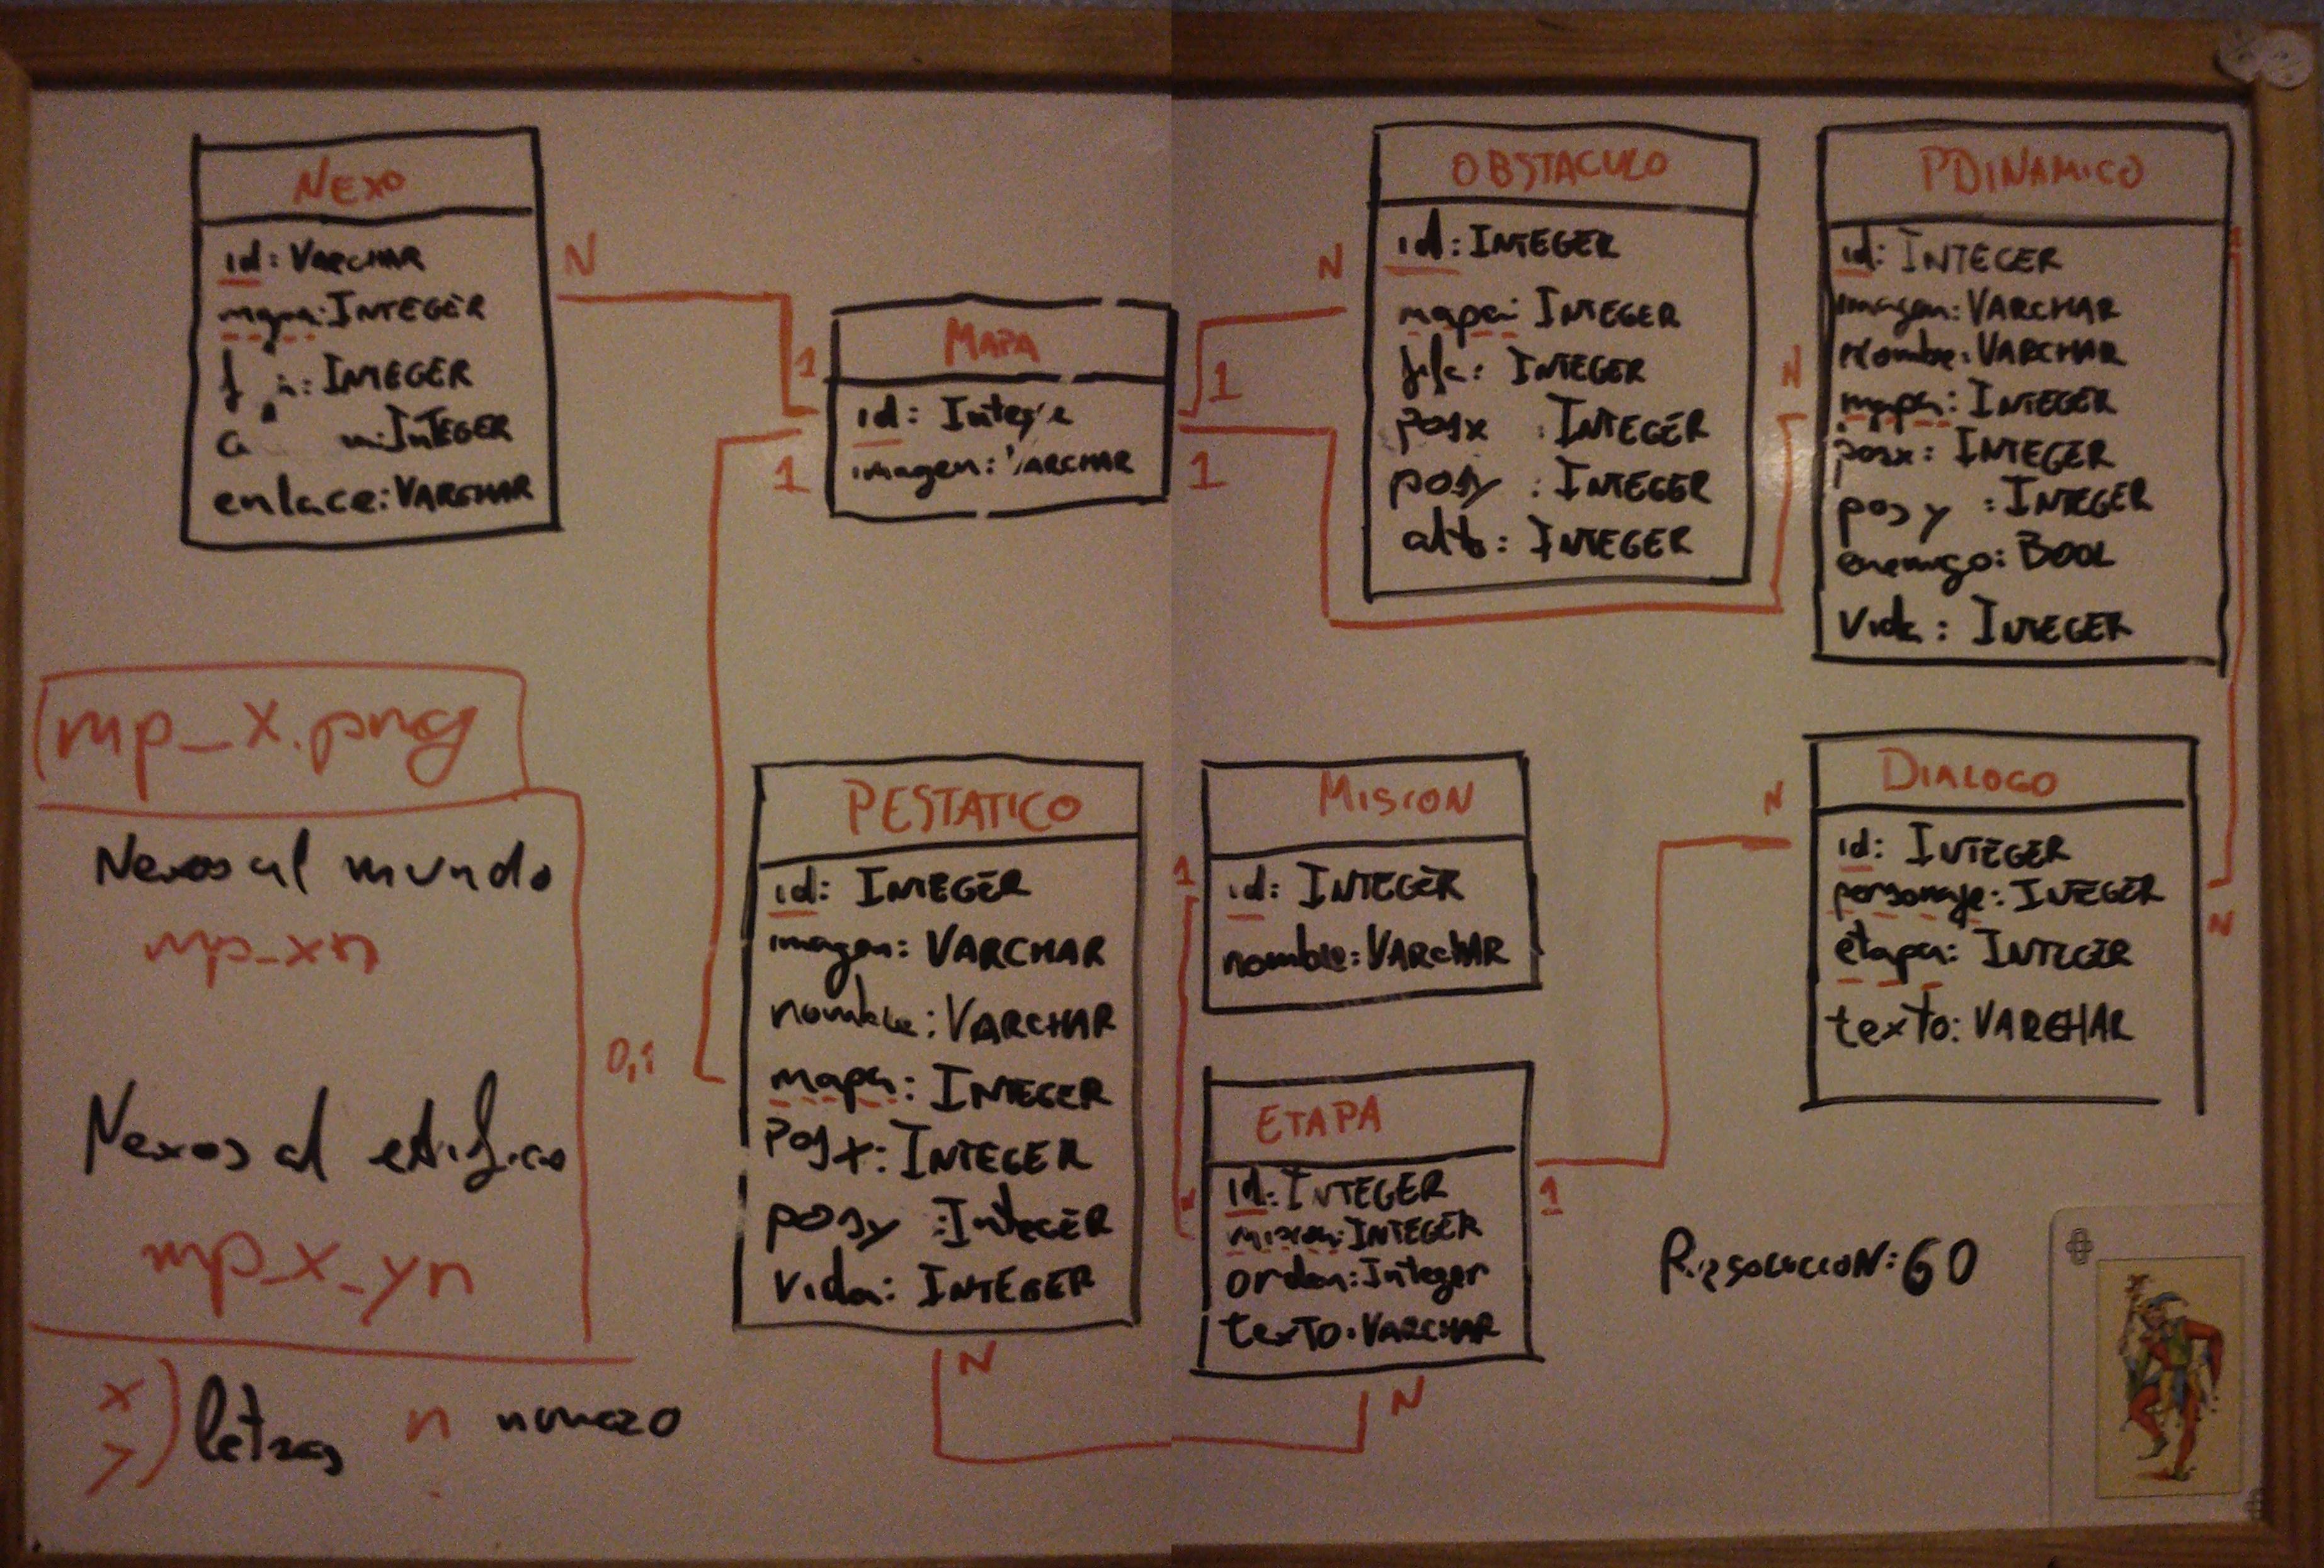 NEXO
id: VARCHAR
mapa: INTEGER
INTEGER
INTEGER
enlace: VARCHAR
N
1
MAPA
id: Intege
imagen: VARCHAR
1
1
1
N
OBSTACULO
id: INTEGER
mapa: INTEGER
fila: INTEGER
posx : INTEGER
posy : INTEGER
alto: INTEGER
N
PDINAMICO
id: INTEGER
imagen: VARCHAR
nombre: VARCHAR
mapa: INTEGER
posx: INTEGER
posy : INTEGER
enemigo: BOOL
Vida: INTEGER
1
mp_x.png
Nexos al mundo
mp_xn
Nexos al
mp_x_yn
x
y) letras n numero
0,1
PESTATICO
id: INTEGER
imagen: VARCHAR
nombre: VARCHAR
mapa: INTEGER
posx: INTEGER
posy :INTEGER
vida: INTEGER
N
1
MISION
id: INTEGER
nombre: VARCHAR
ETAPA
id: INTEGER
mision: INTEGER
orden: Integer
texto: VARCHAR
N
1
N
DIALOGO
id: INTEGER
personaje: INTEGER
etapa: INTEGER
texto: VARCHAR
N
RESOLUCION: 60